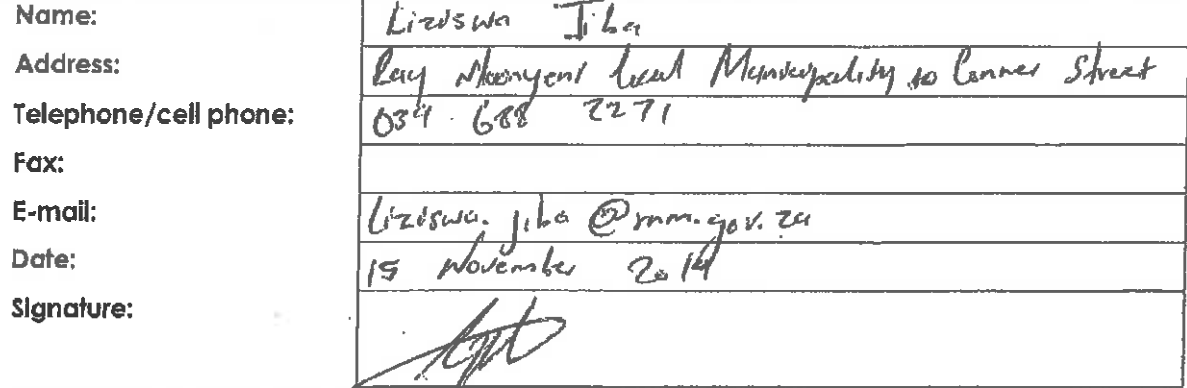 Name: Liziswa Jiba
Address: Ray Nkonyeni Local Municipality 10 Connor Street
Telephone/cell phone: 039 688 2271
Fax:
E-mail: liziswa.jiba@rnm.gov.za
Date: 15 November 2019
Signature: